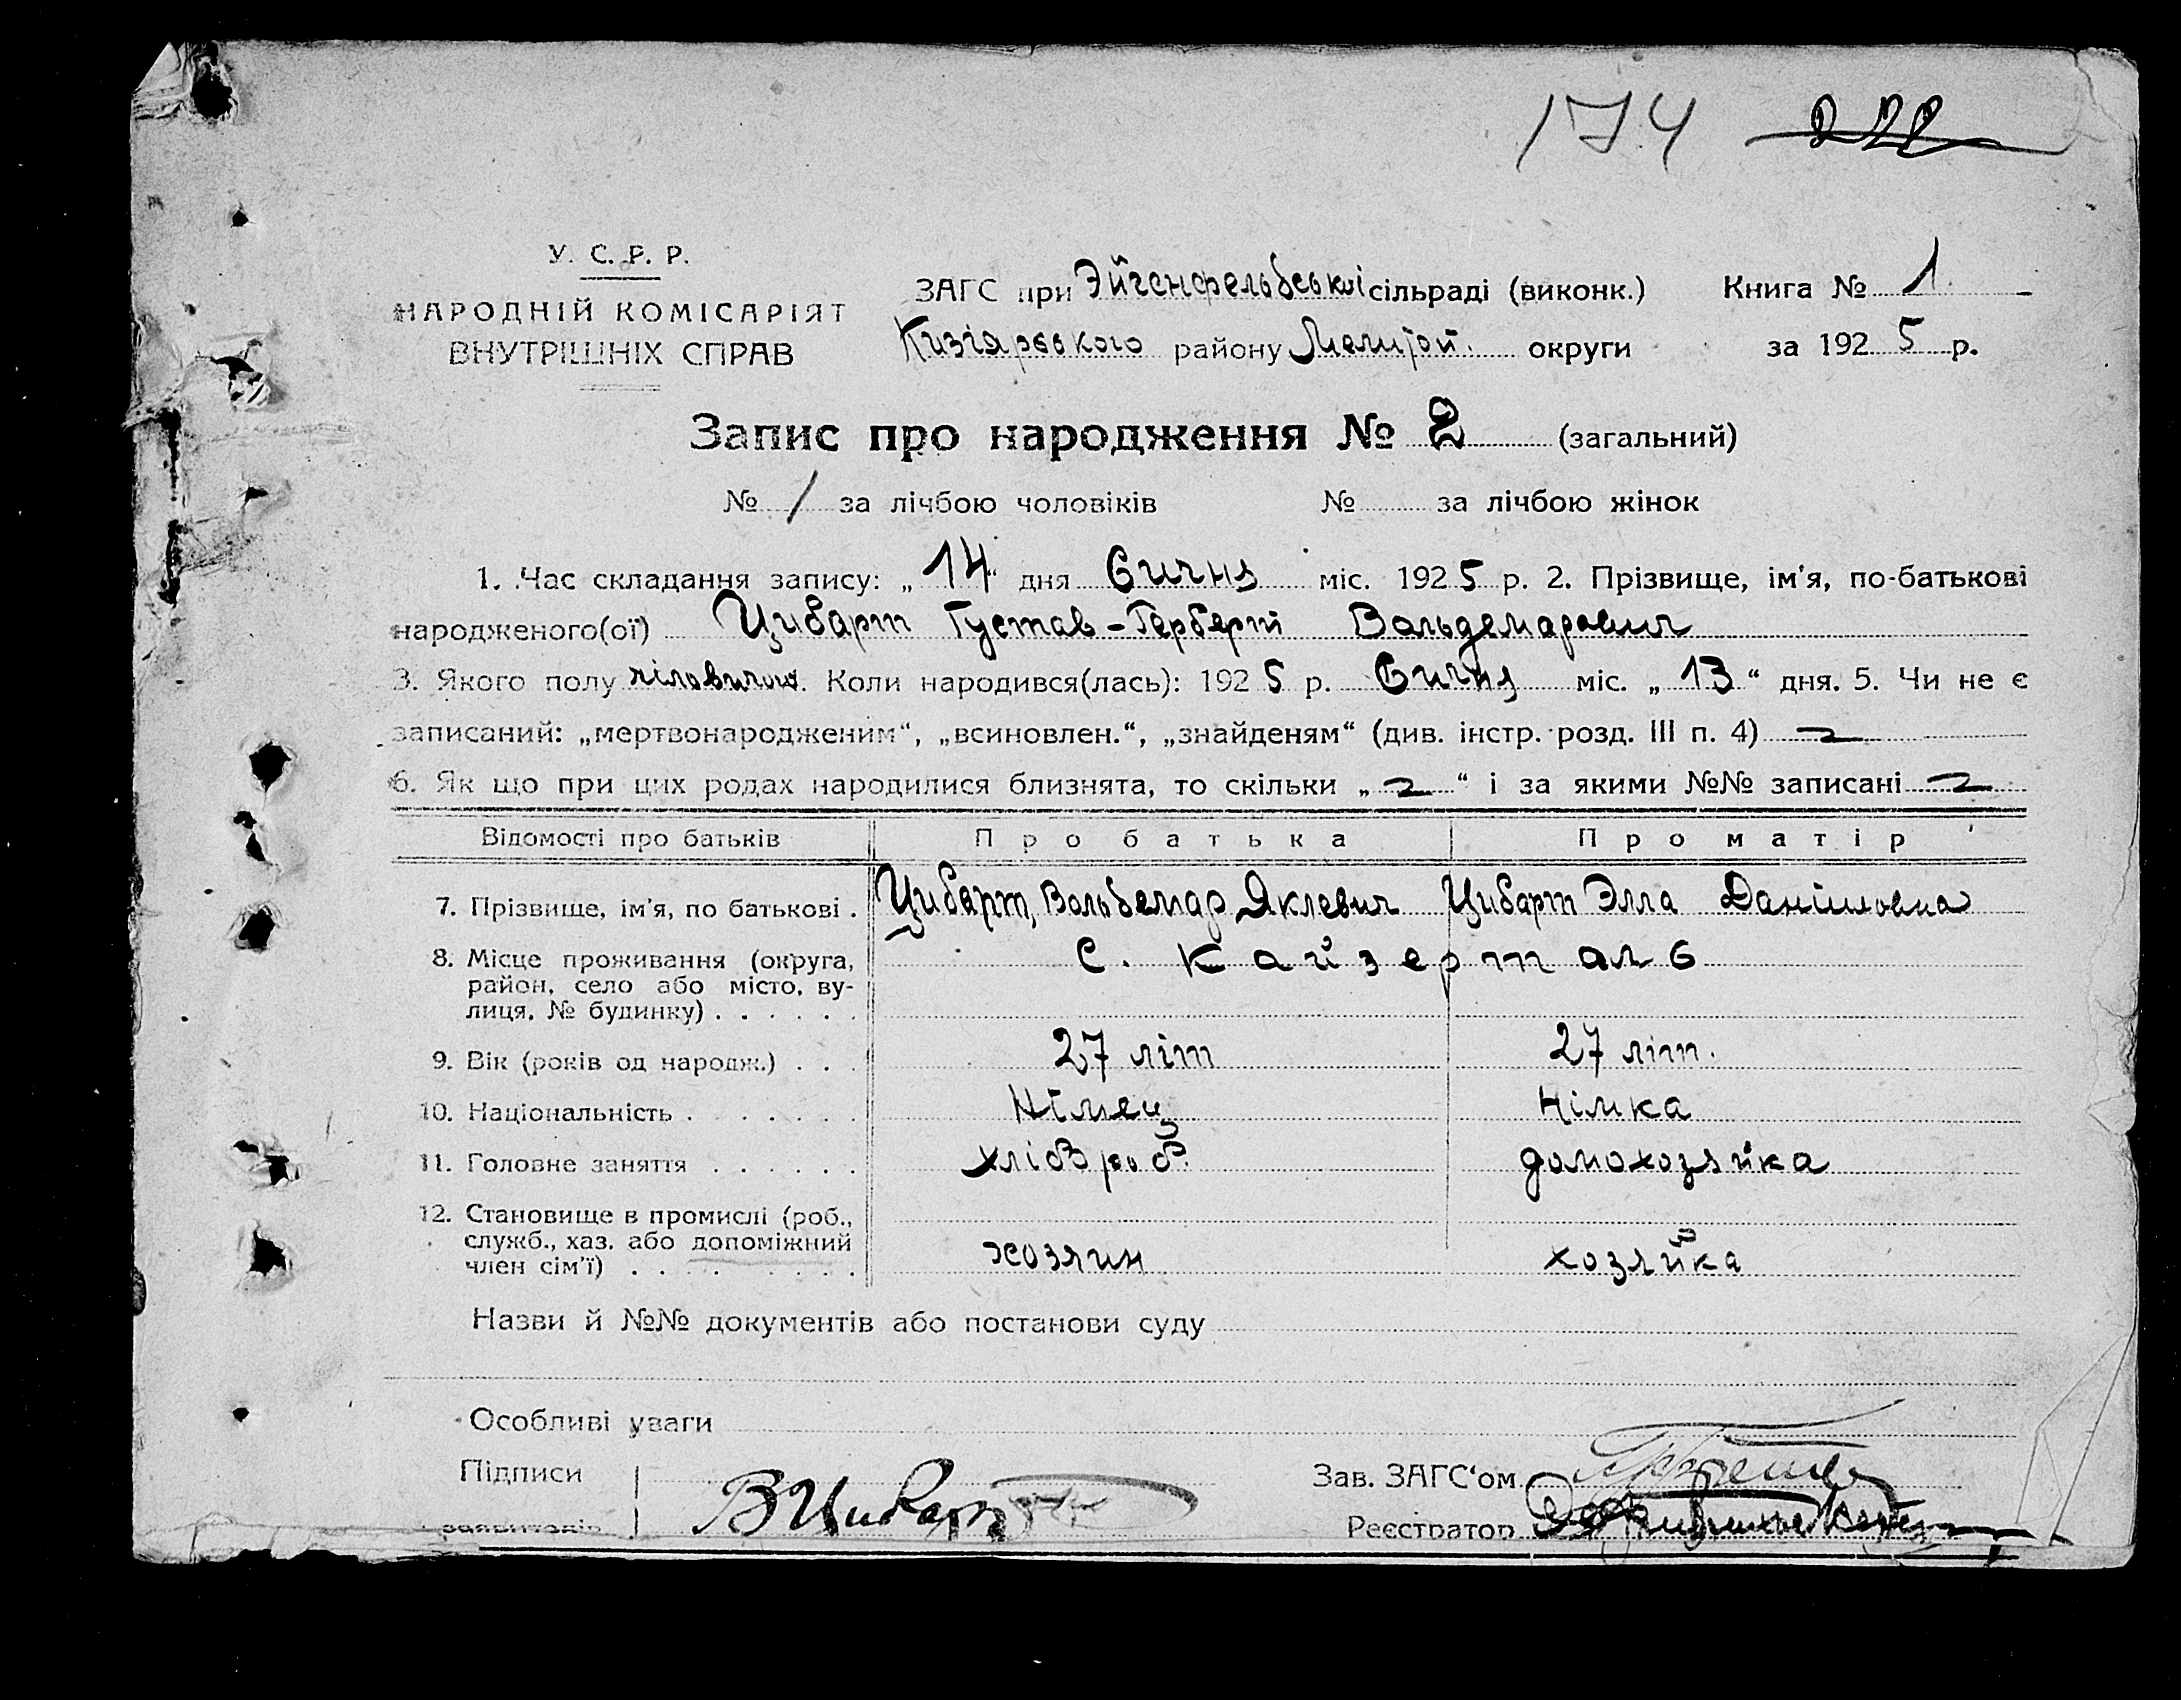 174 222
У. С. Р. Р.
НАРОДНІЙ КОМІСАРІЯТ
ВНУТРІШНІХ СПРАВ
ЗАГС при Эйгенфельдські сільраді (виконк.) Книга № 1
Кизіярського району Мелітоп. округи за 1925 р.
Запис про народження № 2 (загальний)
№ 1 за лічбою чоловіків № за лічбою жінок
1. Час складання запису: „14“ дня Січня міс. 1925 р. 2. Прізвище, ім'я, по-батькові
народженого(ої) Цибарт Густав-Герберт Вальдемарович
3. Якого полу чіловичого. Коли народився(лась): 1925 р. Січня міс. „13“ дня. 5. Чи не є
записаний: „мертвонародженим“, „всиновлен.“, „знайденям“ (див. інстр. розд. III п. 4)
6. Як що при цих родах народилися близнята, то скільки „ “ і за якими №№ записані
Відомості про батьків Про батька Про матір
7. Прізвище, ім'я, по батькові . Цибарт, Вальдемар Яклевич Цибарт Элла Даніиловна
8. Місце проживання (округа, С. Кайзерталь
район, село або місто, ву-
лиця, № будинку) . . . . . .
9. Вік (років од народж.) . . . 27 літ 27 літ.
10. Національність . . . . . . Німец Німка
11. Головне заняття . . . . . . хлібороб. домохозяйка
12. Становище в промислі (роб.,
служб., хаз. або допоміжний
член сім'ї) . . . . . . . . хозяин хозяйка
Назви й №№ документів або постанови суду
Особливі уваги
Підписи Зав. ЗАГС'ом
заявителів В Цибарт Реєстратор